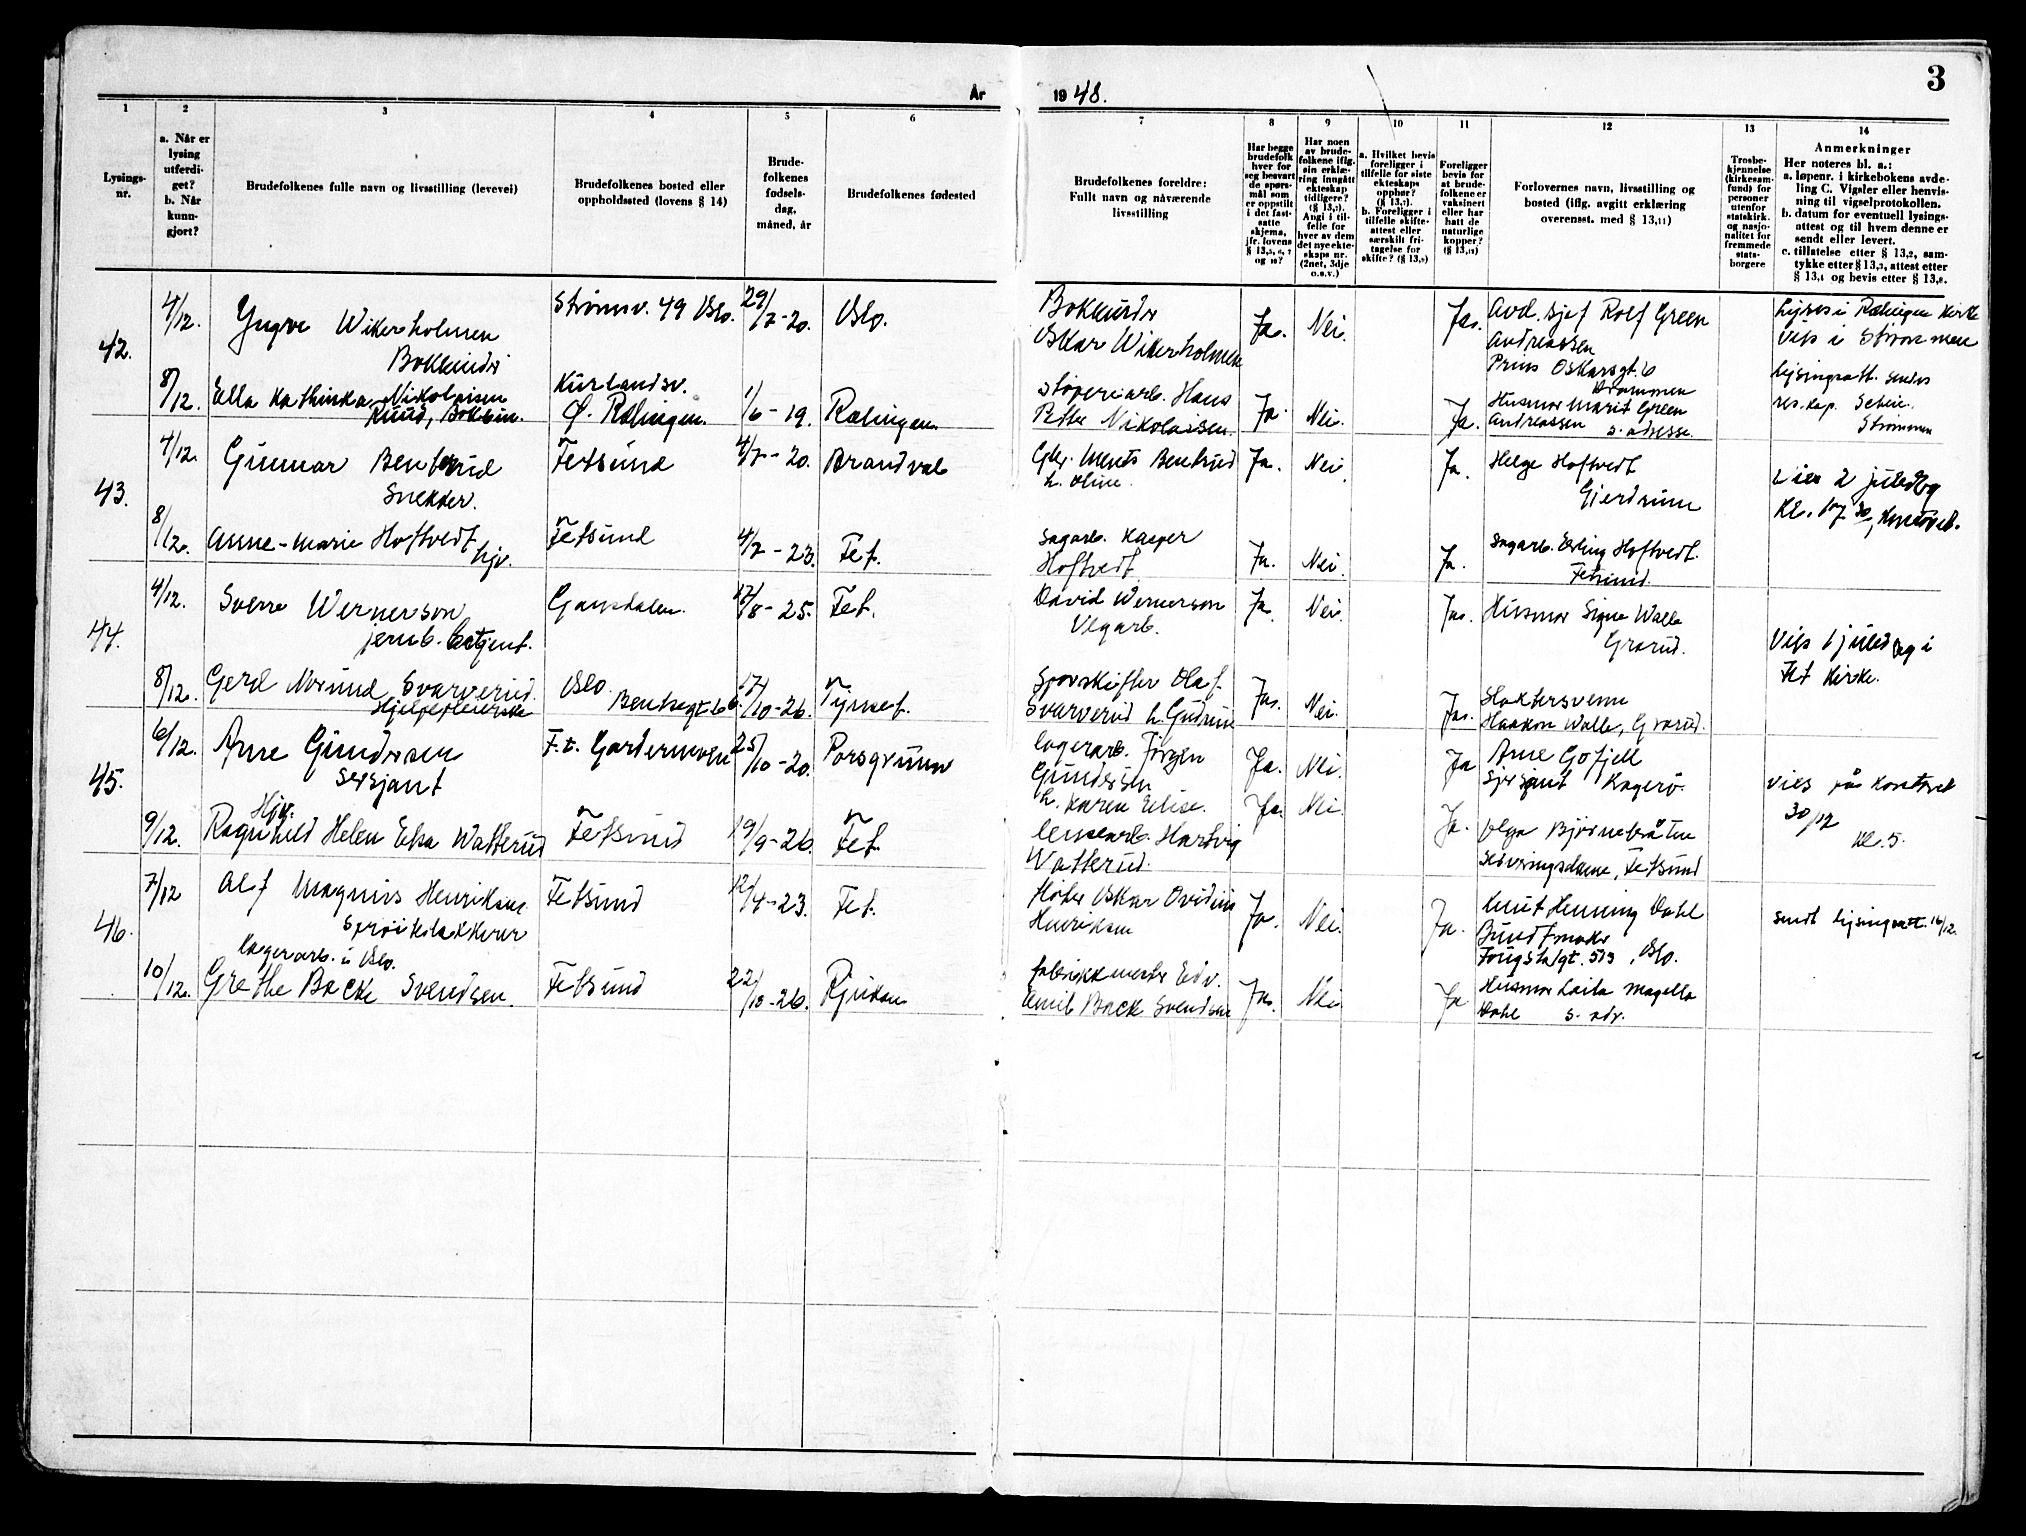 År 1948.
3
1 2 3 4 5 6 7 8 9 10 11 12 13 14
Lysings-
nr.
a. Når er
lysing
utferdi-
get?
b. Når
kunn-
gjort?
Brudefolkenes fulle navn og livsstilling (levevei)
Brudefolkenes bosted eller
oppholdssted (lovens § 14)
Brude-
folkenes
fødsels-
dag,
måned, år
Brudefolkenes fødested
Brudefolkenes foreldre:
Fullt navn og nåværende
livsstilling
Har begge
brudefolk
hver for
seg besvart
de spørs-
mål som
er oppstilt
i det fast-
satte
skjema,
jfr. lovens
§ 13,5, 6, 7
og 10?
Har noen
av brude-
folkene iflg.
sin erklæ-
ring inngått
ekteskap
tidligere?
(§ 13,7).
Angi i til-
felle for
hver av dem
det nye ekte-
skaps nr.
(2net, 3dje
o.s.v.)
a. Hvilket bevis
foreligger i
tilfelle for siste
ekteskaps
opphør?
(§ 13,7).
b. Foreligger i
tilfelle skifte-
attest eller
særskilt fri-
tagelse for
skifte? (§ 13,9)
Foreligger
bevis for
at brude-
folkene er
vaksinert
eller har
hatt de
naturlige
kopper?
(§ 13,12)
Forlovernes navn, livsstilling og
bosted (iflg. avgitt erklæring
overensst. med § 13,11)
Trosbe-
kjennelse
(kirkesam-
fund) for
personer
utenfor
statskirk.
og nasjo-
nalitet for
fremmede
stats-
borgere
Anmerkninger
Her noteres bl. a.:
a. løpenr. i kirkebokens avde-
ling C. Vigsler eller henvis-
ning til vigselprotokollen.
b. datum for eventuell lysings-
attest og til hvem denne er
sendt eller levert.
c. tillatelse etter § 13,2, sam-
tykke etter § 13,3, attest etter
§ 13,4 og bevis etter § 13,8.
42.
4/12. Yngve Wikerholmen
Strømsv. 49 Oslo. 29/7-20. Oslo.
Bokbinder
Oskar Wikerholmen Ja. Nei. Ja.
Avd. sjef Rolf Green
Andreassen
Prins Oskarsgt. 6
Drammen
Lyses i Rælingen Kirke
Vies i Strømmen
8/12. Ella Kathinka Nikolaisen
Kurlandsv.
Ø. Rælingen. 1/6-19. Rælingen.
Støperiarb. Hans
Petter Nikolaisen. Ja. Nei. Ja.
Husmor Marit Green
Andreassen s. adresse.
Lysingsatt. sendes
res. kap.
Strømmen
43.
4/12. Gunnar
Snekker.
Fetsund 4/7-20. Brandval
Ja. Nei. Ja.
Helge Hoftvedt
Gjerdrum
Vies 2 juledag
8/12. Anne-Marie Hoftvedt
hjv.
Fetsund 4/7-23. Fet.
Sagarb. Kasper
Hoftvedt Ja. Nei. Ja.
Sagarb. Erling Hoftvedt.
Fetsund.
44.
4/12. Sverre Wernerson
Gansdalen. 17/8-25. Fet.
David Wernerson
Vegarb. Ja. Nei. Ja.
Husmor Signe Walle
Grorud.
Vies 1 juledag i
Fet Kirke.
8/12. Gerd Norunn Svarverud.
Hjelpepleierske
Oslo. 17/10-26. Tynset.
Olaf
Svarverud h. Gudrun Ja. Nei. Ja.
Haakon Walle, Grorud.
45.
6/12. Arne Gundersen
Sersjant
F.t. Gardermoen 25/10-20. Porsgrunn
Lagerarb. Jörgen
Gundersen
h. Karen Elise. Ja. Nei. Ja
Arne Gofjell
Sersjant Kragerø.
Vies på kontoret
30/12
kl. 5.
Hjv.
9/12. Ragnhild Helen Elsa Watterud
Fetsund 19/9-26. Fet.
Lensearb. Hartvig
Watterud. Ja. Nei. Ja.
Olga Bjørnebråten
Serveringsdame, Fetsund
46.
7/12 Alf Magnus Henriksen
Fetsund 12/4-23. Fet.
Oskar Ovidius
Henriksen Ja. Nei. Ja.
Knut Henning Dahl
Buntmaker
Oslo.
sendt lysingsatt. 16/12.
Lagerarb. i Oslo.
10/12. Grethe Back Svendsen.
Fetsund 22/10-26. Rjukan
Fabrikkmester Edv.
Emil Back Svendsen Ja. Nei Ja
Husmor Laila Magella
Dahl s. adr.